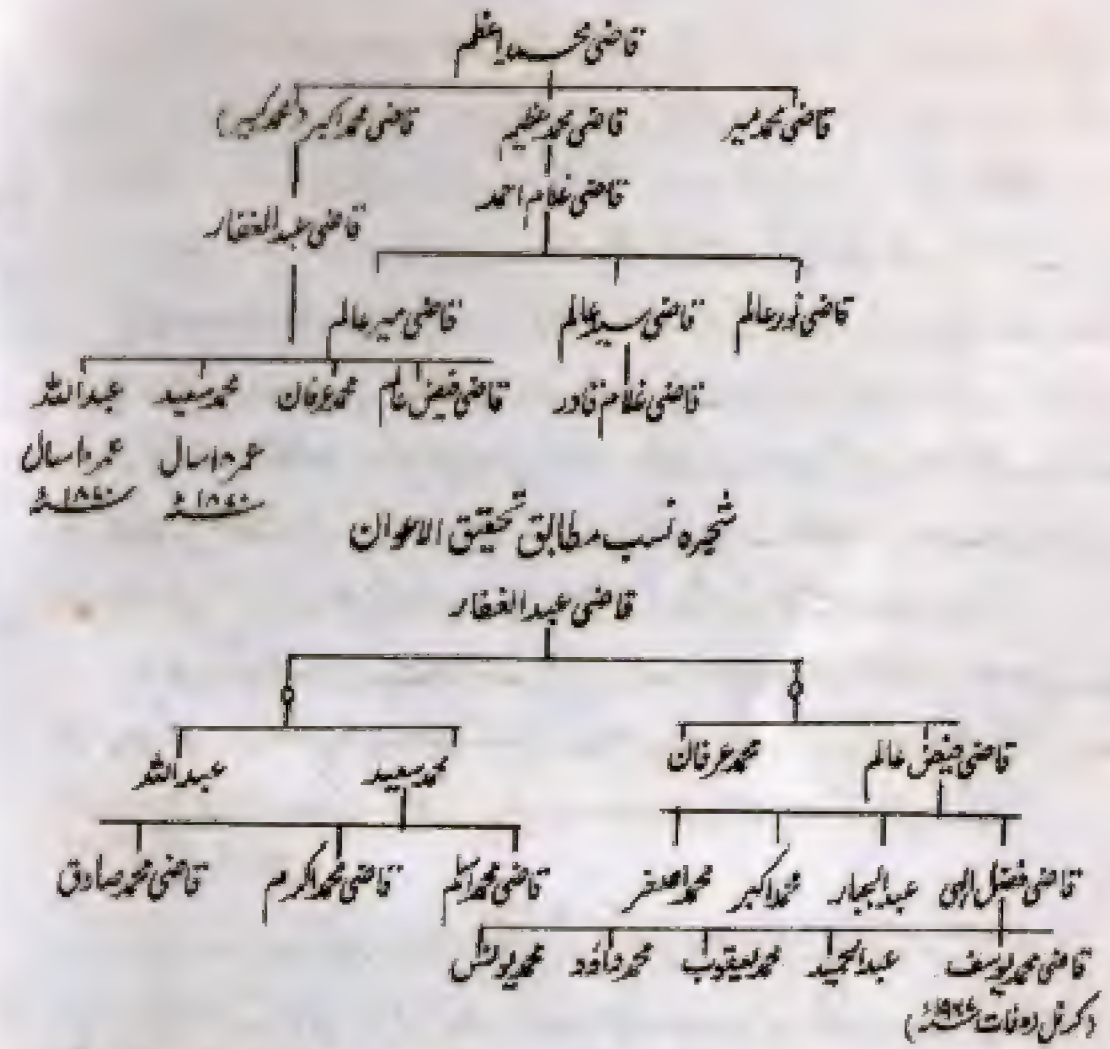 قاضی محمد اعظم
قاضی محمد میر قاضی محمد عظیم قاضی محمد اکبر (محمد کبیر)
قاضی غلام احمد
قاضی عبدالغفار
قاضی نور عالم قاضی سید عالم قاضی میر عالم
قاضی غلام قادر قاضی فیض عالم محمد عرفان محمد سعید عبداللہ
عمر ۱۸ سال عمر ۱۰ سال
شجرہ نسب مطابق تحقیق الاعوان
قاضی عبدالغفار
قاضی فیض عالم محمد عرفان محمد سعید عبداللہ
قاضی فضل الہی عبدالجبار محمد اکبر محمد اصغر قاضی محمد اسلم قاضی محمد اکرم قاضی محمد صادق
قاضی محمد یوسف عبدالحمید محمد یعقوب محمد داؤد محمد یونس
(کرنل وفات